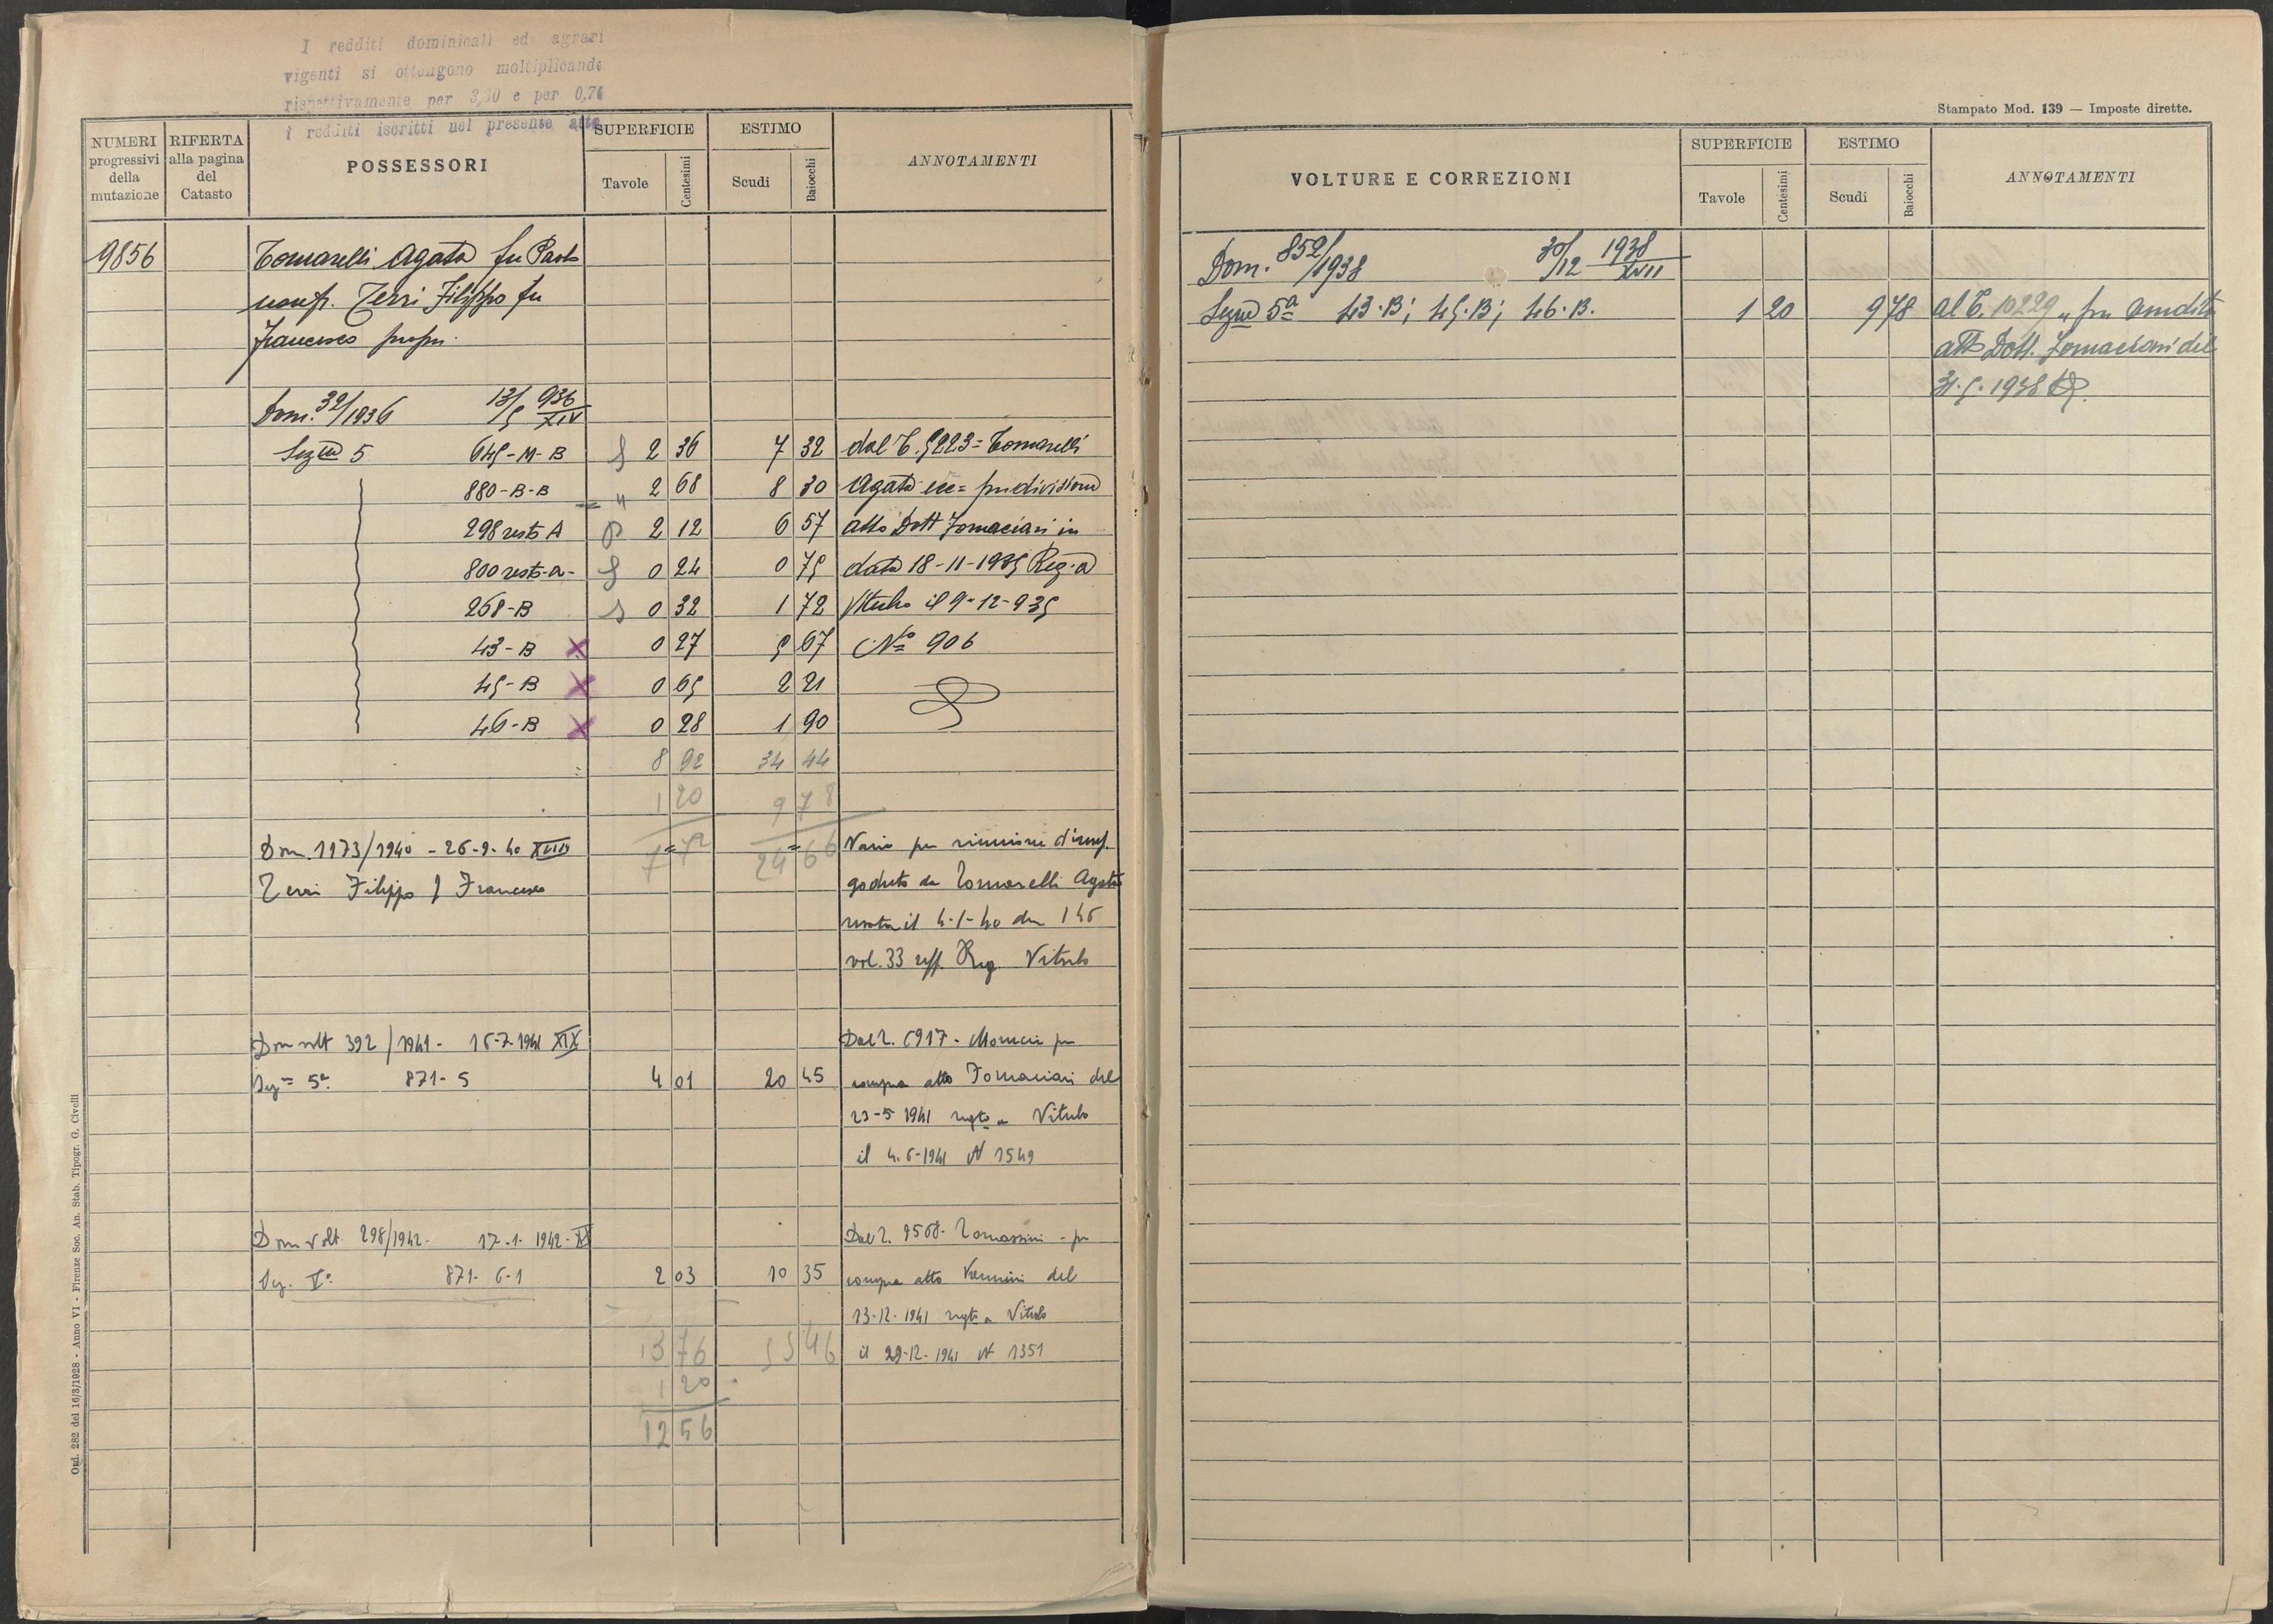 I redditi dominicali ed agrari
vigenti si ottengono moltiplicando
rispettivamente per 3,30 e per 0,76
i redditi iscritti nel presente atto
NUMERI progressivi della mutazione
RIFERTA alla pagina del Catasto
POSSESSORI
SUPERFICIE
Tavole Centesimi
ESTIMO
Scudi Baiocchi
ANNOTAMENTI
9856 Tomarelli Agata fu Paolo
usufr. Terzi Filippo fu
Francesco propr.
Dom. 32/1936 13/5 936 XIV
Sezne 5 645-M-B 2 36 7 32 dal T. 5223 = Tomarelli
880-B-B " 2 68 8 30 Agata ecc = per divisione
298 resto A 2 12 6 57 atto Dott Fornaciari in
800 resto-a- 0 24 0 75 data 18-11-1935 Reg. a
268-B 0 32 1 72 Viterbo il 9-12-935
43-B X 0 27 5 67 No 906
45-B X 0 65 2 21
46-B X 0 28 1 90
8 92 34 44
1 20 9 78
7 72 24 66
Dom. 1173/1940 - 26-9-40 XVIII Varia per riunione d'usuf.
Terzi Filippo f Francesco goduto da Tomarelli Agata
morta il 4-1-40 den 146
vol. 33 uff. Reg. Viterbo
Dom volt 392/1941 - 16-7-1941 XIX Dal T. 6917 -
Sez= 5a 871-5 4 01 20 45 compra atto Fornaciari del
23-5 1941 regto a Viterbo
il 4-6-1941 N 1549
Dom volt 298/1942 - 17-1-1942-XX Dal T. 9568 - Tomassini - per
Sez. Va 871-6-1 2 03 10 35 compra atto Vannini del
13-12-1941 regto a Viterbo
13 76 55 46 il 29-12-1941 N 1351
1 20
12 56
Ord. 282 del 16/3/1928 - Anno VI - Firenze Soc. An. Stab. Tipogr. G. Civelli
Stampato Mod. 139 — Imposte dirette.
VOLTURE E CORREZIONI
SUPERFICIE
Tavole Centesimi
ESTIMO
Scudi Baiocchi
ANNOTAMENTI
Dom. 852/1938 30/12 1938 XVII
Sezne 5a 43.B; 45.B; 46.B. 1 20 9 78 al T. 10229 " per vendita
atto Dott. Fornaciari del
31.5.1938